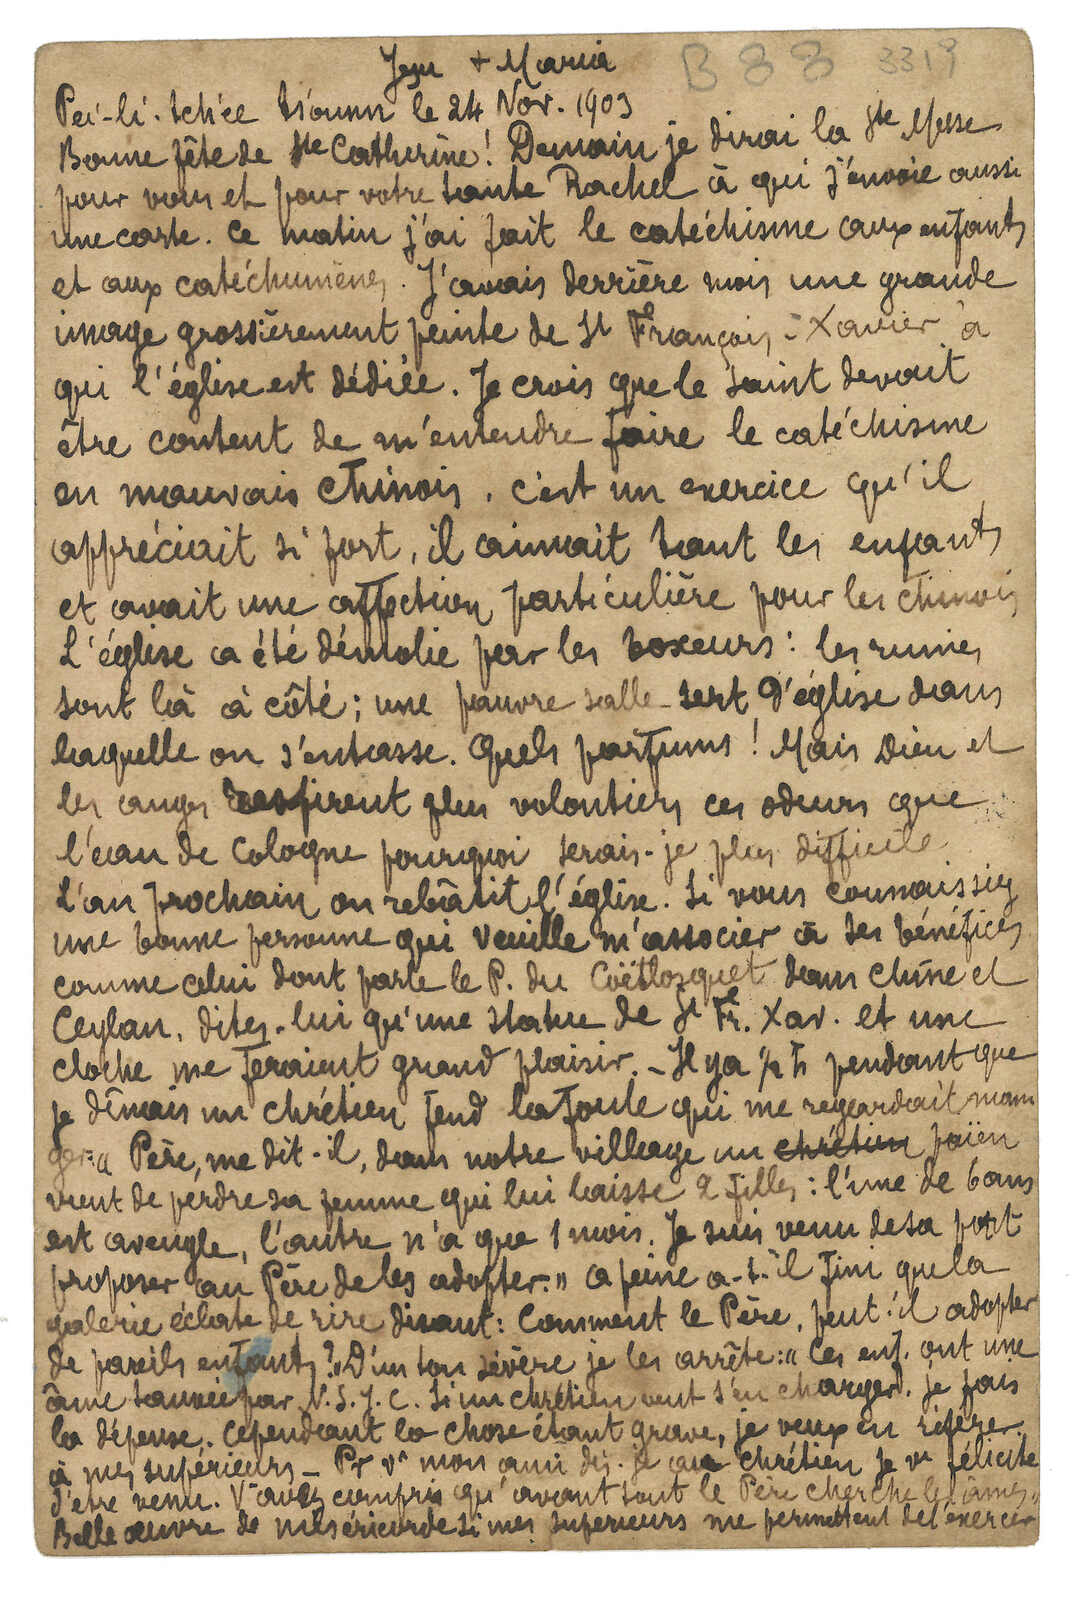 Jesu + Maria B 88 3319
Pei-li-tch'ee ts'ounn le 24 Nov. 1903
Bonne fête de Ste Catherine! Demain je dirai la Ste Messe
pour vous et pour votre tante Rachel à qui j'envoie aussi
une carte. Ce matin j'ai fait le catéchisme aux enfants
et aux catéchumènes. J'avais derrière mois une grande
image grossièrement peinte de St François-Xavier à
qui l'église est dédiée. Je crois que le Saint devait
être content de m'entendre faire le catéchisme
en mauvais chinois, c'est un exercice qu'il
appréciait si fort, il aimait tant les enfants
et avait une affection particulière pour les chinois
L'église a été démolie par les boxeurs: les ruines
sont là à côté; une pauvre salle sert d'église dans
laquelle on s'entasse. Quels parfums! Mais Dieu et
les anges respirent plus volontiers ces odeurs que
l'eau de Cologne pourquoi serais-je plus difficile
L'an prochain on rebâtit l'église. Si vous connaissiez
une bonne personne qui veuille m'associer à ses bénéfices
comme celui dont parle le P. du Coëtlosquet dans Chine et
Ceylan, dites-lui qu'une statue de St Fr. Xav. et une
cloche me feraient grand plaisir. - Il y a ½ h pendant que
je dînais un chrétien fend la foule qui me regardait man
ger: "Père, me dit-il, dans notre village un chrétien païen
vient de perdre sa femme qui lui laisse 2 filles: l'une de 6 ans
est aveugle, l'autre n'a que 1 mois. Je suis venu de sa part
proposer au Père de les adopter." A peine a-t-il fini que la
galerie éclate de rire disant: Comment le Père, peut-il adopter
de pareils enfants?" D'un ton sévère je les arrête: "Ces enf. ont une
âme sauvée par N.S.J.C. Si un chrétien veut s'en charger, je fais
la dépense. Cependant la chose étant grave, je veux en référer
à mes supérieurs - Pr vs mon ami dis-je au chrétien je vs félicite
d'etre venu. Vs avez compris qu'avant tout le Père cherche les âmes"
Belle œuvre de miséricorde si mes supérieurs me permettent de l'exercer